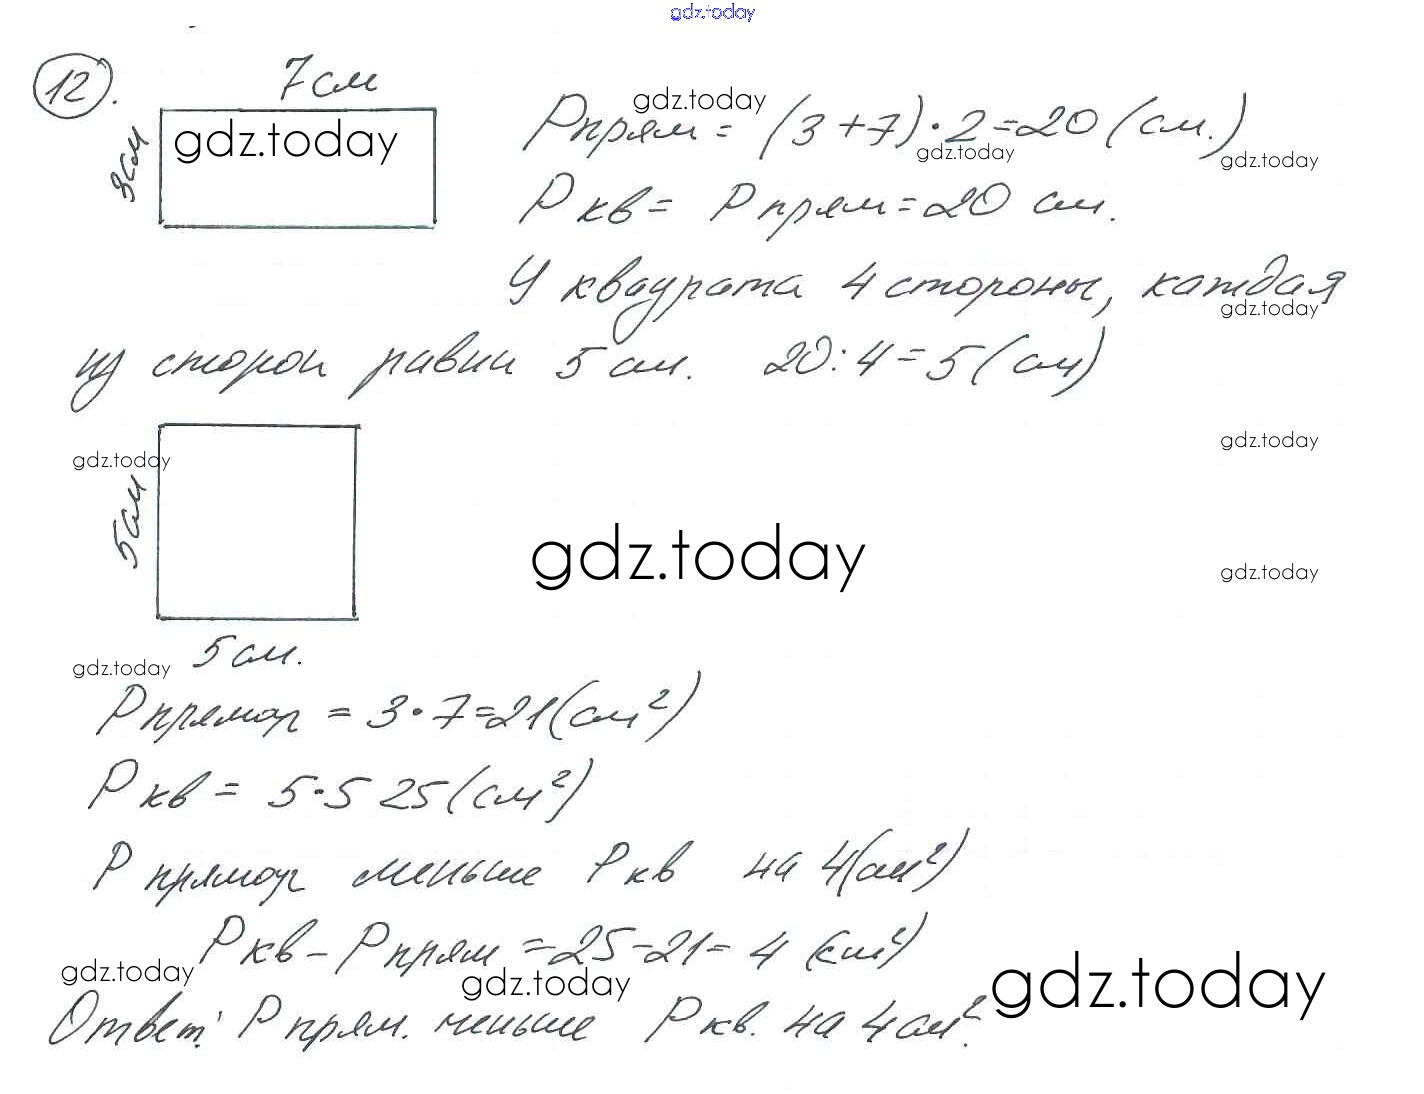 gdz.today
12.
7см
3см
gdz.today
gdz.today
Рпрям = (3+7)·2=20 (см.)
gdz.today
gdz.today
Р кв = Р прям = 20 см.
У квадрата 4 стороны, каждая
gdz.today
из сторон равна 5 см. 20:4=5(см)
gdz.today
gdz.today
5см
gdz.today
gdz.today
5см.
gdz.today
Рпрямоуг = 3·7=21(см²)
Р кв = 5·5 25(см²)
Р прямоуг меньше Р кв на 4(см²)
Ркв – Рпрям = 25–21= 4 (см²)
gdz.today
gdz.today
gdz.today
Ответ: Р прям. меньше Р кв. на 4 см².